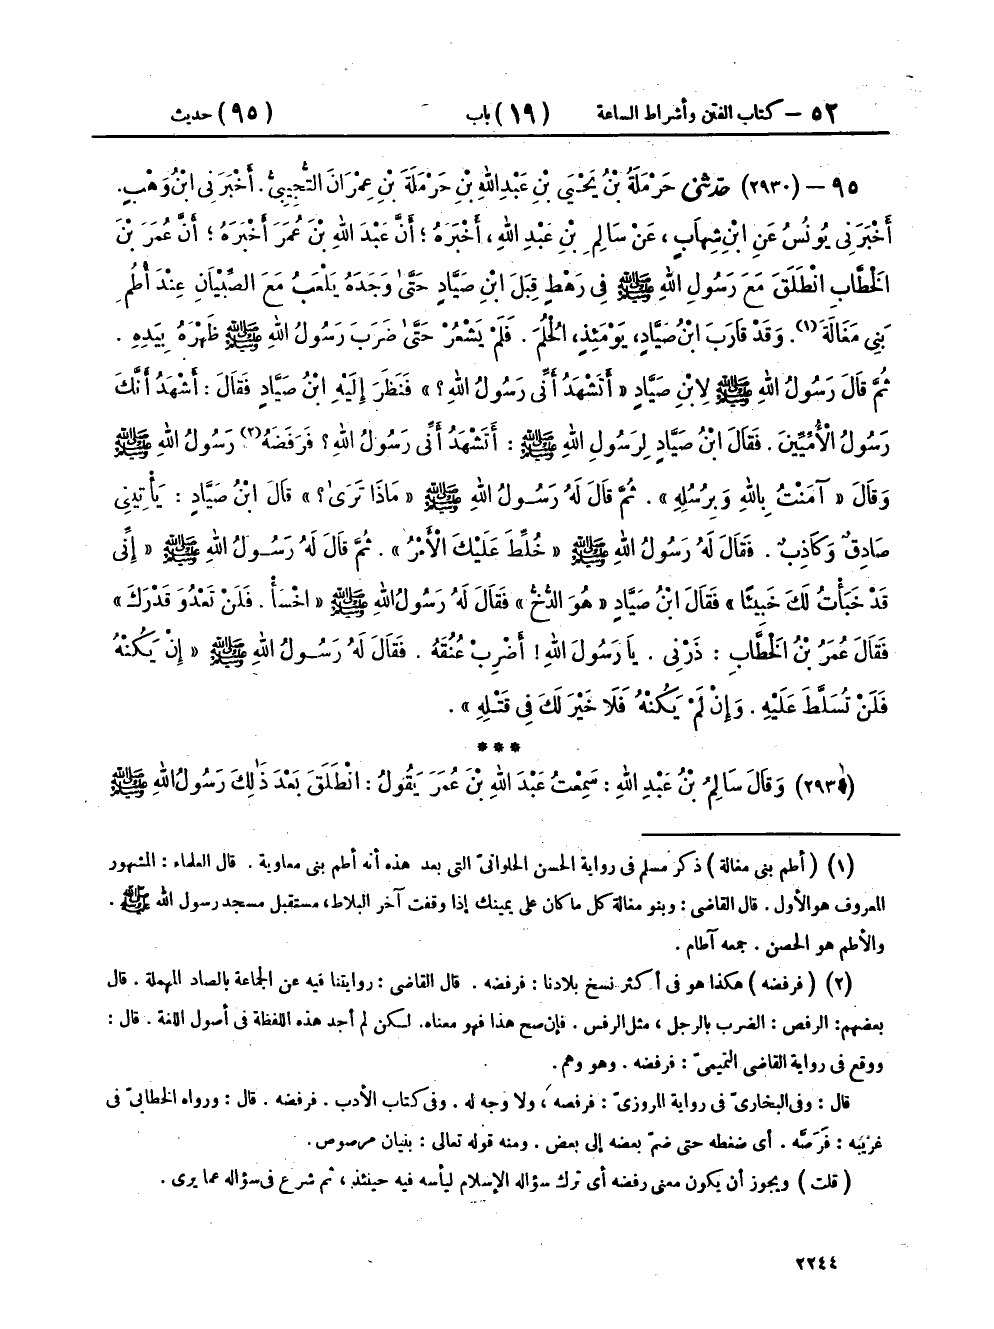 ٥٢ – كتاب الفتن وأشراط الساعة (١٩) باب (٩٥) حديث
٩٥ – (٢٩٣٠) حدثني حَرْمَلَةُ بْنُ يَحْيَى بْنِ عَبْدِ اللهِ بْنِ حَرْمَلَةَ بْنِ عِمْرَانَ التُّجِيبِيُّ. أَخْبَرَنِي ابْنُ وَهْبٍ.
أَخْبَرَنِي يُونُسُ عَنِ ابْنِ شِهَابٍ، عَنْ سَالِمِ بْنِ عَبْدِ اللهِ، أَخْبَرَهُ؛ أَنَّ عَبْدَ اللهِ بْنَ عُمَرَ أَخْبَرَهُ؛ أَنَّ عُمَرَ بْنَ
الْخَطَّابِ انْطَلَقَ مَعَ رَسُولِ اللهِ ﷺ فِي رَهْطٍ قِبَلَ ابْنِ صَيَّادٍ حَتَّى وَجَدَهُ يَلْعَبُ مَعَ الصِّبْيَانِ عِنْدَ أُطُمِ
بَنِي مَغَالَةَ (١). وَقَدْ قَارَبَ ابْنُ صَيَّادٍ، يَوْمَئِذٍ، الْحُلُمَ. فَلَمْ يَشْعُرْ حَتَّى ضَرَبَ رَسُولُ اللهِ ﷺ ظَهْرَهُ بِيَدِهِ.
ثُمَّ قَالَ رَسُولُ اللهِ ﷺ لِابْنِ صَيَّادٍ « أَتَشْهَدُ أَنِّي رَسُولُ اللهِ؟ » فَنَظَرَ إِلَيْهِ ابْنُ صَيَّادٍ فَقَالَ: أَشْهَدُ أَنَّكَ
رَسُولُ الْأُمِّيِّينَ. فَقَالَ ابْنُ صَيَّادٍ لِرَسُولِ اللهِ ﷺ: أَتَشْهَدُ أَنِّي رَسُولُ اللهِ؟ فَرَفَضَهُ (٢) رَسُولُ اللهِ ﷺ
وَقَالَ « آمَنْتُ بِاللهِ وَبِرُسُلِهِ ». ثُمَّ قَالَ لَهُ رَسُولُ اللهِ ﷺ « مَاذَا تَرَى؟ » قَالَ ابْنُ صَيَّادٍ: يَأْتِينِي
صَادِقٌ وَكَاذِبٌ. فَقَالَ لَهُ رَسُولُ اللهِ ﷺ « خُلِّطَ عَلَيْكَ الْأَمْرُ ». ثُمَّ قَالَ لَهُ رَسُولُ اللهِ ﷺ « إِنِّي
قَدْ خَبَأْتُ لَكَ خَبِيئًا » فَقَالَ ابْنُ صَيَّادٍ « هُوَ الدُّخُّ » فَقَالَ لَهُ رَسُولُ اللهِ ﷺ « اخْسَأْ. فَلَنْ تَعْدُوَ قَدْرَكَ »
فَقَالَ عُمَرُ بْنُ الْخَطَّابِ: ذَرْنِي. يَا رَسُولَ اللهِ! أَضْرِبْ عُنُقَهُ. فَقَالَ لَهُ رَسُولُ اللهِ ﷺ « إِنْ يَكُنْهُ
فَلَنْ تُسَلَّطَ عَلَيْهِ. وَإِنْ لَمْ يَكُنْهُ فَلَا خَيْرَ لَكَ فِي قَتْلِهِ ».
***
(٢٩٣١) وَقَالَ سَالِمُ بْنُ عَبْدِ اللهِ: سَمِعْتُ عَبْدَ اللهِ بْنَ عُمَرَ يَقُولُ: انْطَلَقَ بَعْدَ ذَلِكَ رَسُولُ اللهِ ﷺ
(١) (أطم بنى مغالة) ذكر مسلم فى رواية الحسن الحلوانىّ التى بعد هذه أنه أطم بنى معاوية. قال العلماء: المشهور
المعروف هو الأول. قال القاضى: وبنو مغالة كل ما كان على يمينك إذا وقفت آخر البلاط، مستقبل مسجد رسول الله ﷺ.
والأطم هو الحصن. جمعه آطام.
(٢) (فرفضه) هكذا هو فى أكثر نسخ بلادنا: فرفضه. قال القاضى: روايتنا فيه عن الجماعة بالصاد المهملة. قال
بعضهم: الرفص: الضرب بالرجل، مثل الرفس. فإن صح هذا فهو معناه. لكن لم أجد هذه اللفظة فى أصول اللغة. قال:
ووقع فى رواية القاضى التميمىّ: فرفضه. وهو وهم.
قال: وفى البخارىّ فى رواية المروزىّ: فرفصه، ولا وجه له. وفى كتاب الأدب. فرفضه. قال: ورواه الخطابىّ فى
غريبه: فَرَصَّه. أى ضغطه حتى ضمّ بعضه إلى بعض. ومنه قوله تعالى: بنيان مرصوص.
(قلت) ويجوز أن يكون معنى رفضه أى ترك سؤاله الإسلام ليأسه فيه حينئذ، ثم شرع فى سؤاله عما يرى.
٢٢٤٤